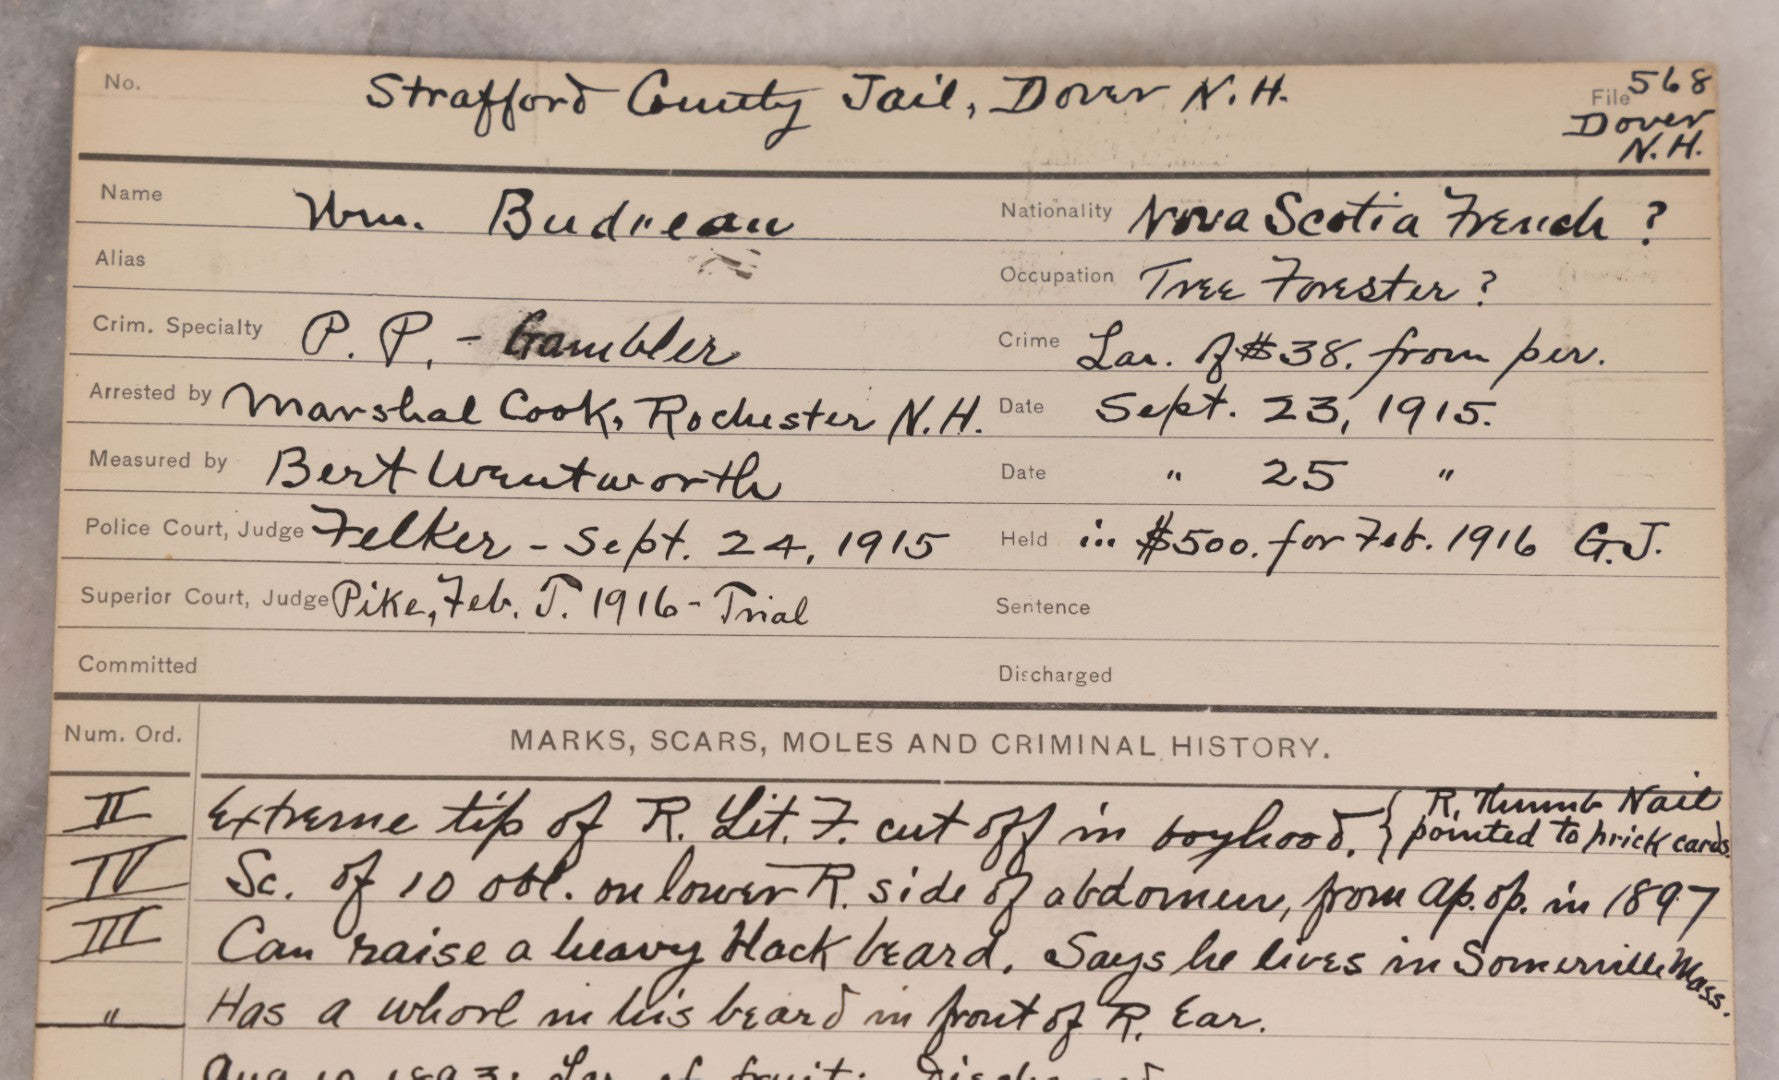 No. Strafford County Jail, Dover N.H. File 568
Dover
N.H.
Name Wm. Budreau Nationality Nova Scotia French ?
Alias Occupation Tree Forester ?
Crim. Specialty P. P. - Gambler Crime Lar. of $38. from per.
Arrested by Marshal Cook, Rochester N.H. Date Sept. 23, 1915.
Measured by Bert Wentworth Date " 25 "
Police Court, Judge Felker - Sept. 24, 1915 Held in $500. for Feb. 1916 G.J.
Superior Court, Judge Pike, Feb. T. 1916 - Trial Sentence
Committed Discharged
Num. Ord. MARKS, SCARS, MOLES AND CRIMINAL HISTORY.
II Extreme tip of R. Lit. F. cut off in boyhood. { R. Thumb Nail
pointed to prick cards.
IV Sc. of 10 obl. on lower R. side of abdomen, from ap. op. in 1897
III Can raise a heavy black beard. Says he lives in Somerville Mass.
" Has a whorl in his beard in front of R. Ear.
Aug 10 1893: Lar. of fruit: Discharged